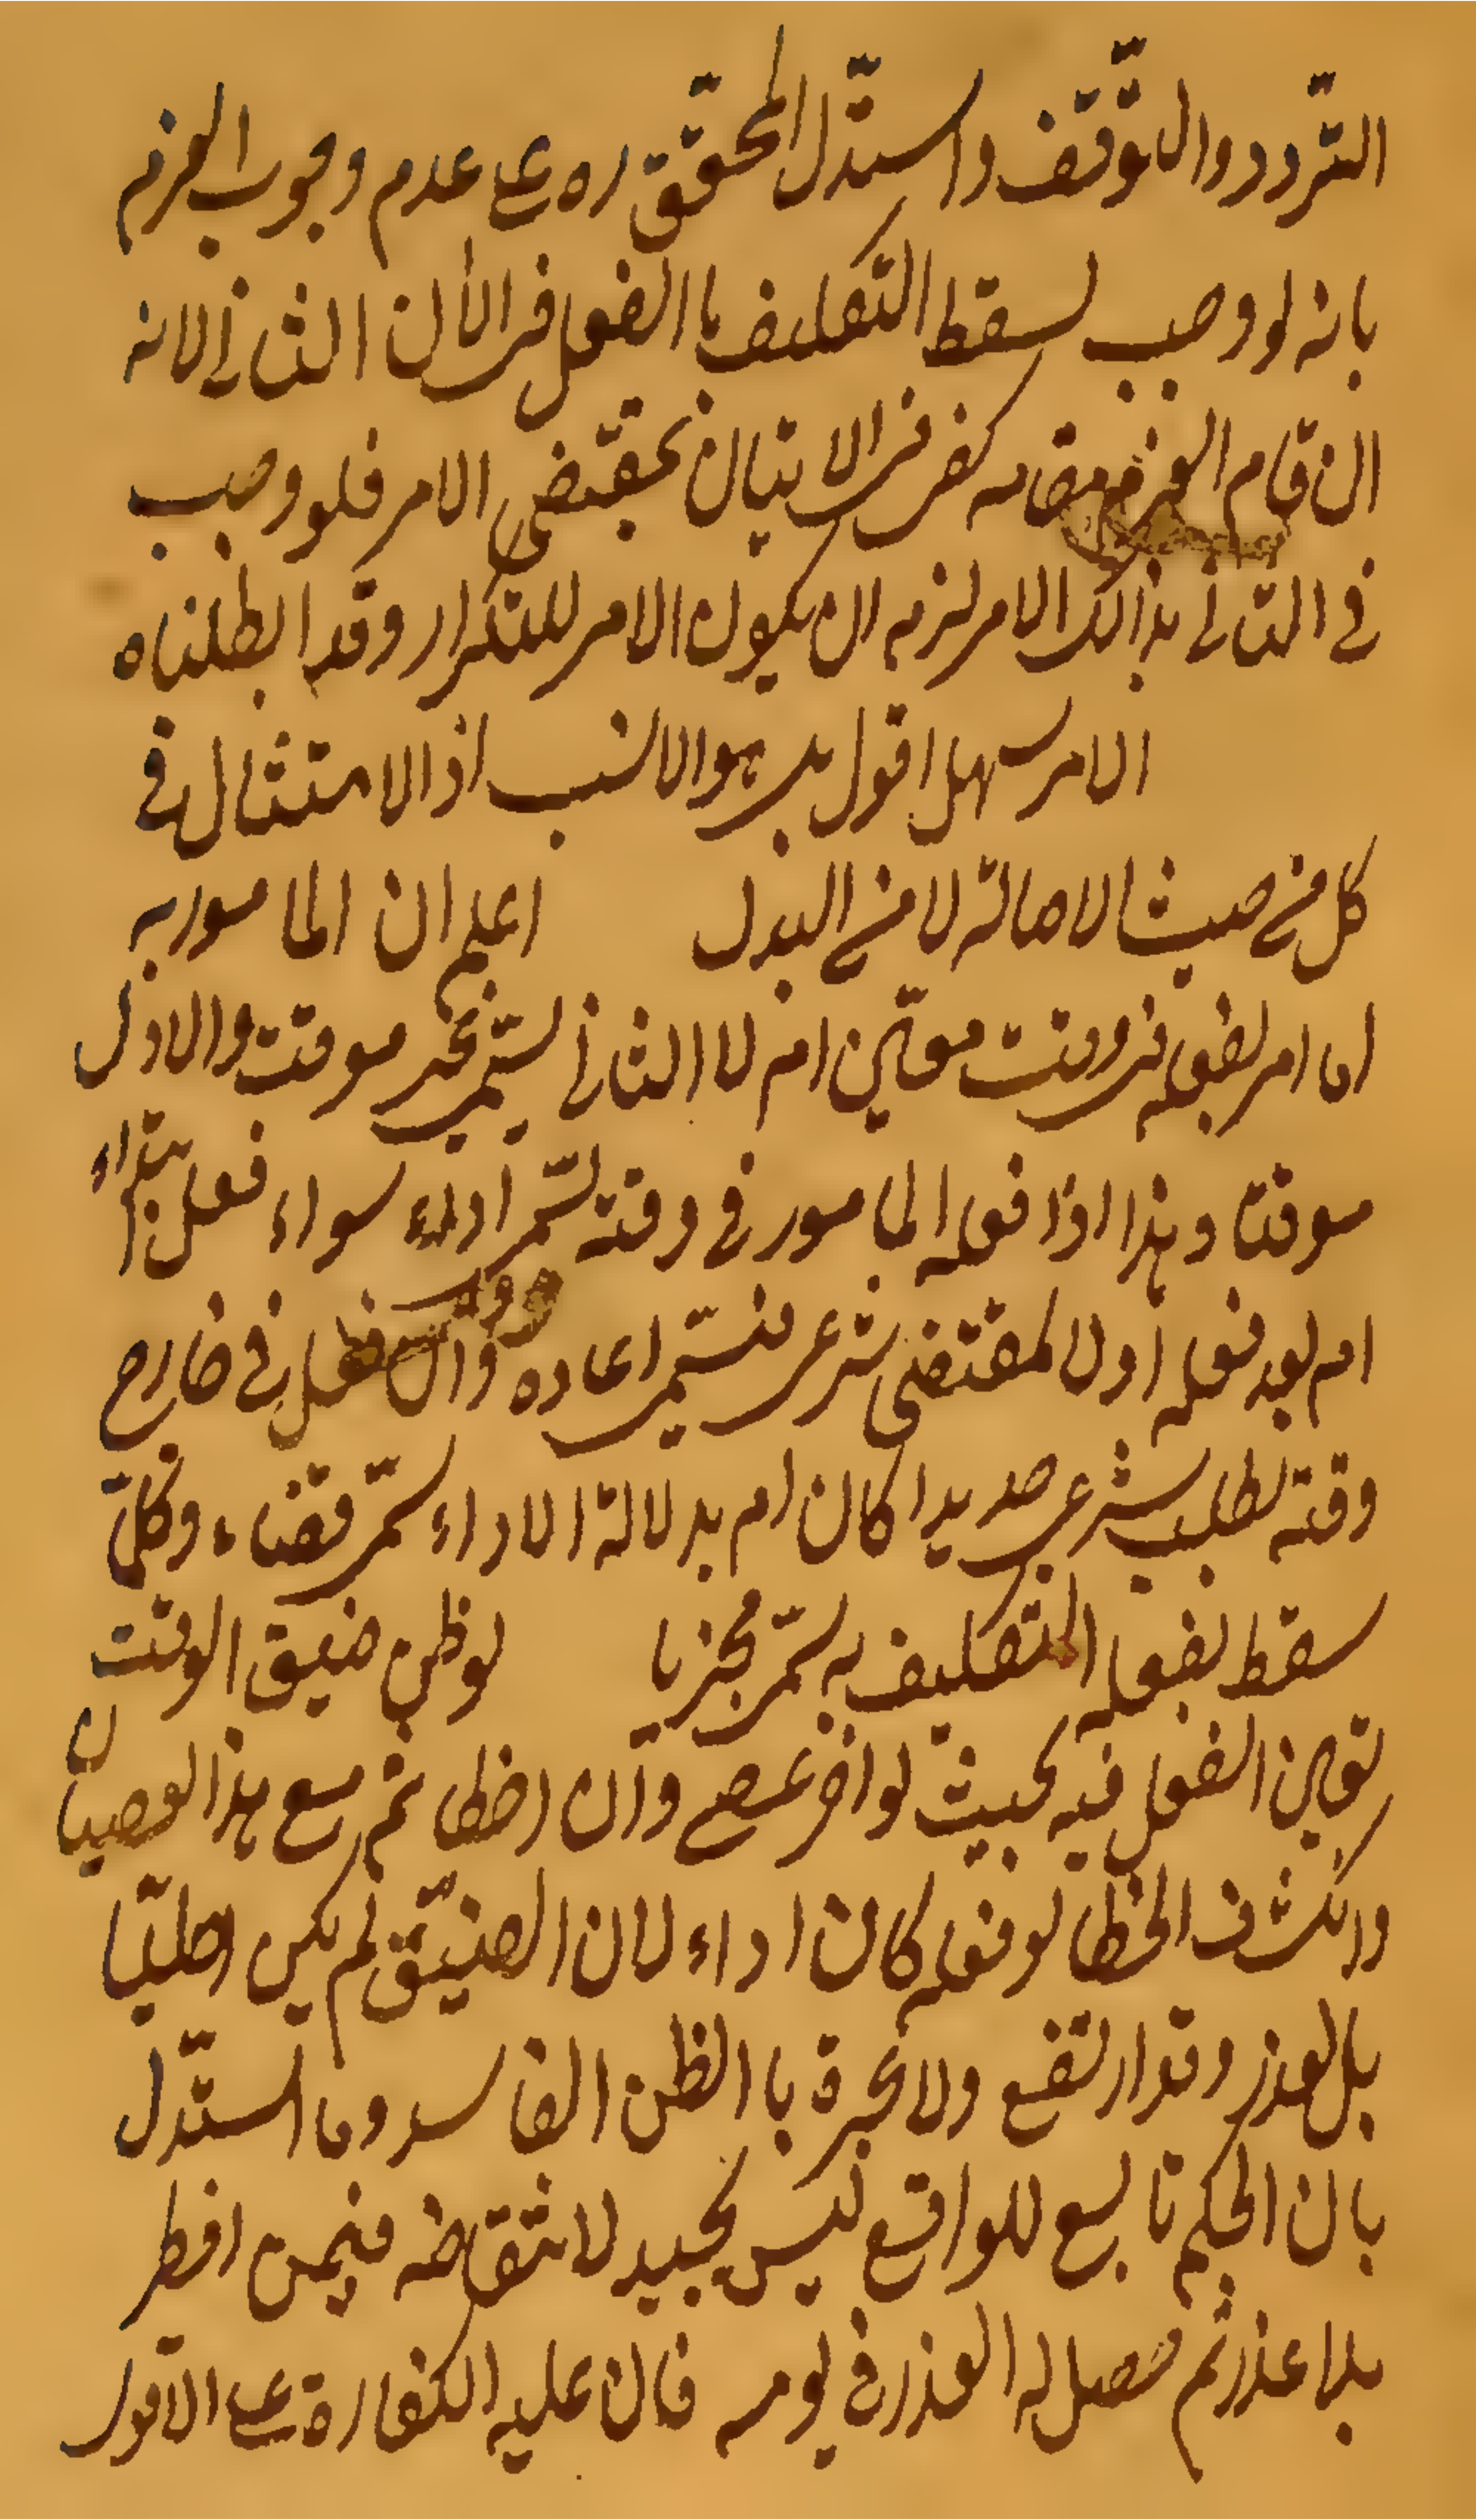 التردد والتوقف واستدل المحقق ره على عدم وجوب العزم
بانه لو وجب لسقط التكليف باالفعل فى الأن الثانى لانه
ان قام العزم مقامه كفى فى الاتيان بمقتضى الامر فلو وجب
فى الثانى بذالك الامر لزم ان يكون الامر للتكرار وقد ابطلناه
الامر سهل اقول بل هو الانسب اذ الامتثال فى
كل من حيث الاصالة لا من البدل اعلم ان المامور به
اما امر بفعله فى وقت معين ام لا الثانى يسمى بغير موقت والاول
موقتا وهذا اذا فعل المامور فى وقته يسمى اداء سواء فعل ابتداء
ام بعد فعله اولا لمقتضى شرعى فيسمى اعاده وان فعل فى خارج
وقته بطلب شرعى جديدا كان ام بدلالة الاداء يسمى قضاء وكل
سقط بفعله التكليف به يسمى مجزيا لو ظن ضيق الوقت
تعين الفعل فيه بحيث لو اخر عصى وان اخطا ثم مع هذا العصيان
وانكشف الخطا لو فعله كان اداء لان الضيق لم يكن اصليا
بل لعذر وقد ارتفع ولا عبرة باالظن الفاسد وما استدل
بان الحكم تابع للواقع ليس بجيد لانتقاضه فيمن افطر
بلا عذر ثم حصل له العذر فى يومه فان عليه الكفارة على الاقوى